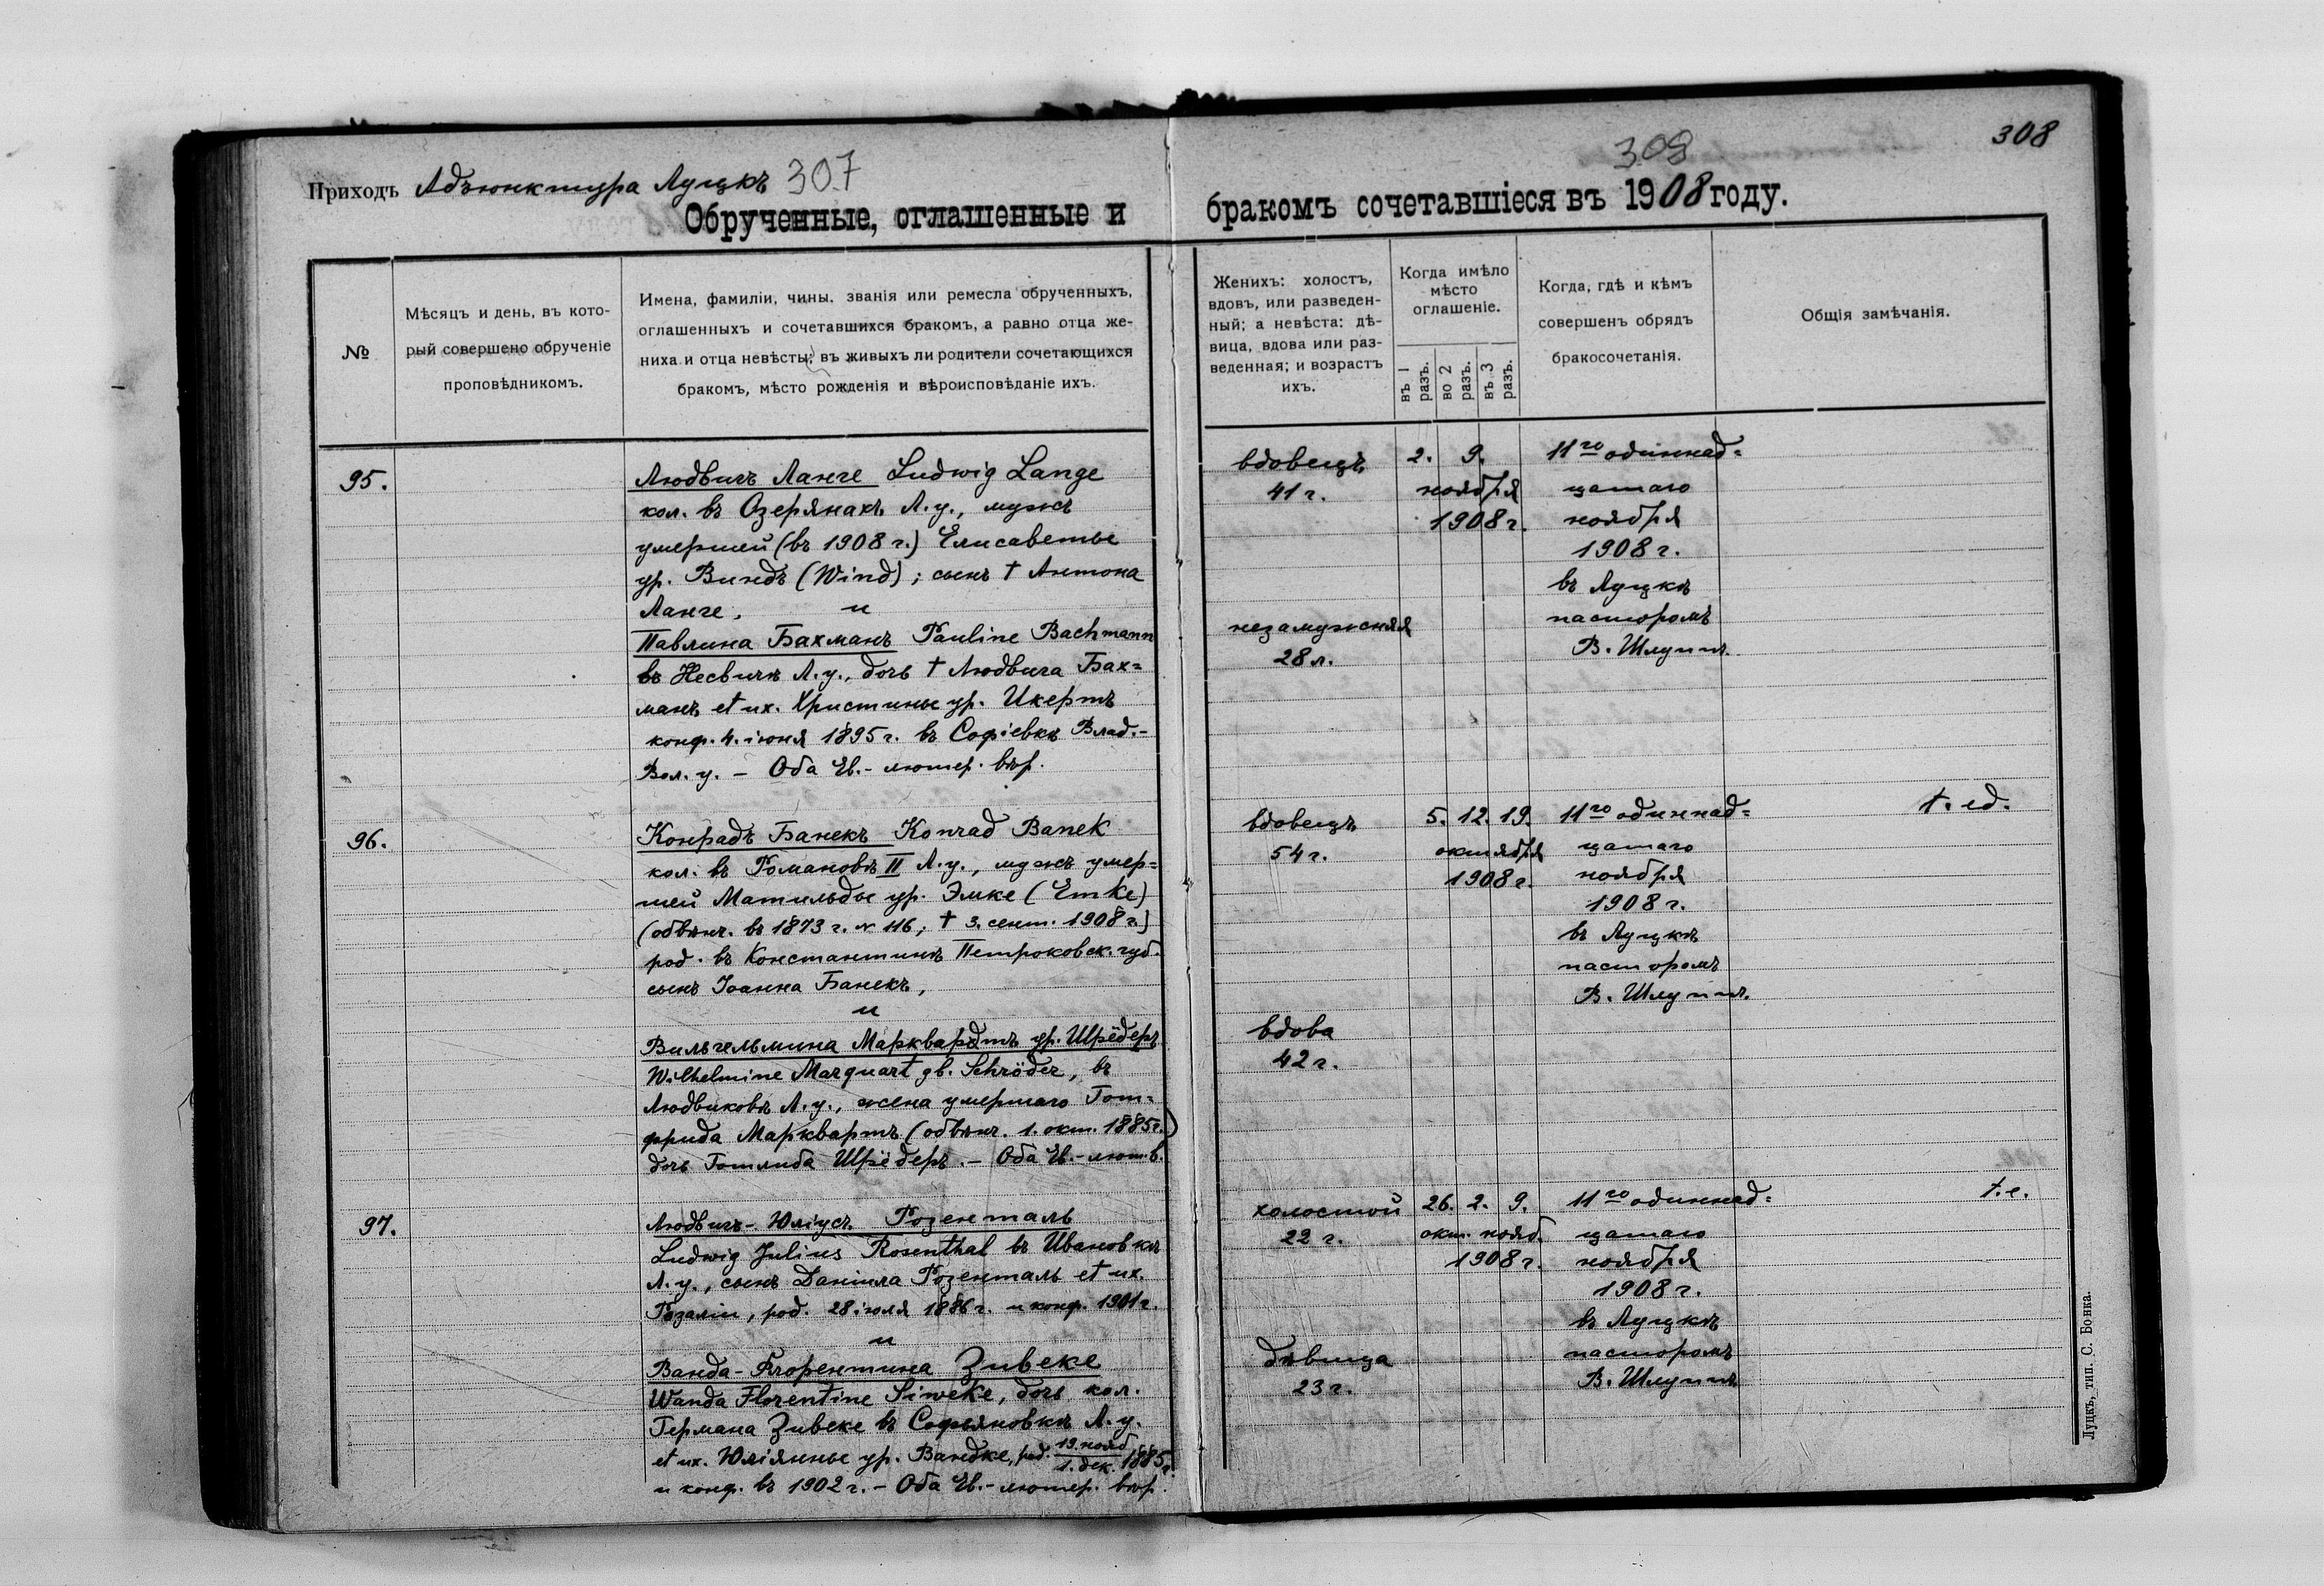 Приходъ Адъюнктура Луцкъ 307
Обрученные, оглашенные и
№
Мѣсяцъ и день, въ кото-
рый совершено обрученіе
проповѣдникомъ.
Имена, фамиліи, чины, званія или ремесла обрученныхъ,
оглашенныхъ и сочетавшихся бракомъ, а равно отца же-
ниха и отца невѣсты; въ живыхъ ли родители сочетающихся
бракомъ, мѣсто рожденія и вѣроисповѣданіе ихъ.
95.
Людвигъ Ланге Ludwig Lange
кол. въ Озерянахъ Л. у., мужъ
умершей (въ 1908 г.) Елисаветы
ур. Виндъ (Wind); сынъ † Антона
Ланге,
и
Павлина Бахманъ Pauline Bachmann
въ Несвичѣ Л. у., дочь † Людвига Бах=
манъ et ux. Христины ур. Икертъ
конф. 4. іюня 1895 г. въ Софіевкѣ Влад.-
Вол. у. – Оба Ев.- лютер. вѣр.
96.
Конрадъ Банекъ Konrad Banek
кол. въ Романовѣ II Л. у., мужъ умер=
шей Матильды ур. Эмке (Emke)
(обвѣнч. въ 1873 г. № 116, † 3. сент. 1908 г.)
род. въ Константинѣ Петроковск. губ.
сынъ Іоанна Банекъ,
и
Вильгельмина Марквардтъ ур. Шрёдеръ
Wilhelmine Marquart gb. Schröder, въ
Людвиковѣ Л. у., жена умершаго Гот=
фрида Марквартъ (обвѣнч. 1. окт. 1885 г.)
дочь Готлиба Шрёдеръ. – Оба Ев.- лют. в.
97.
Людвигъ-Юліусъ Розенталь
Ludwig Julius Rosenthal въ Ивановкѣ
Л. у., сынъ Даніила Розенталь et ux.
Розаліи, род. 28 іюля 1886 г. и конф. 1901 г.
и
Ванда-Флорентина Зивеке
Wanda Florentine Siweke, дочь кол.
Германа Зивеке въ Софьяновкѣ Л. у.
et ux. Юліянны ур. Вандке, род. 19. нояб / 1. дек. 1885 г.
и конф. въ 1902 г. – Оба Ев.- лютер. вѣр.
308
308
бракомъ сочетавшіеся въ 1908 году.
Женихъ: холостъ,
вдовъ, или разведен-
ный; а невѣста: дѣ-
вица, вдова или раз-
веденная; и возрастъ
ихъ.
Когда имѣло
мѣсто
оглашеніе.
въ 1 разъ.
во 2 разъ.
въ 3 разъ.
Когда, гдѣ и кѣмъ
совершенъ обрядъ
бракосочетанія.
Общія замѣчанія.
вдовецъ
41 г.
незамужняя
28 л.
2. 9.
ноября
1908 г.
11го одиннад=
цатаго
ноября
1908 г.
въ Луцкѣ
пасторомъ
В. Шлуппъ.
вдовецъ
54 г.
вдова
42 г.
5. 12. 19.
октября
1908 г.
11го одиннад=
цатаго
ноября
1908 г.
въ Луцкѣ
пасторомъ
В. Шлуппъ.
t. ed.
холостой
22 г.
дѣвица
23 г.
26. 2. 9.
окт. нояб.
1908 г.
11го одиннад=
цатаго
ноября
1908 г.
въ Луцкѣ
пасторомъ
В. Шлуппъ
t. e.
Луцкъ, тип. С. Бонка.